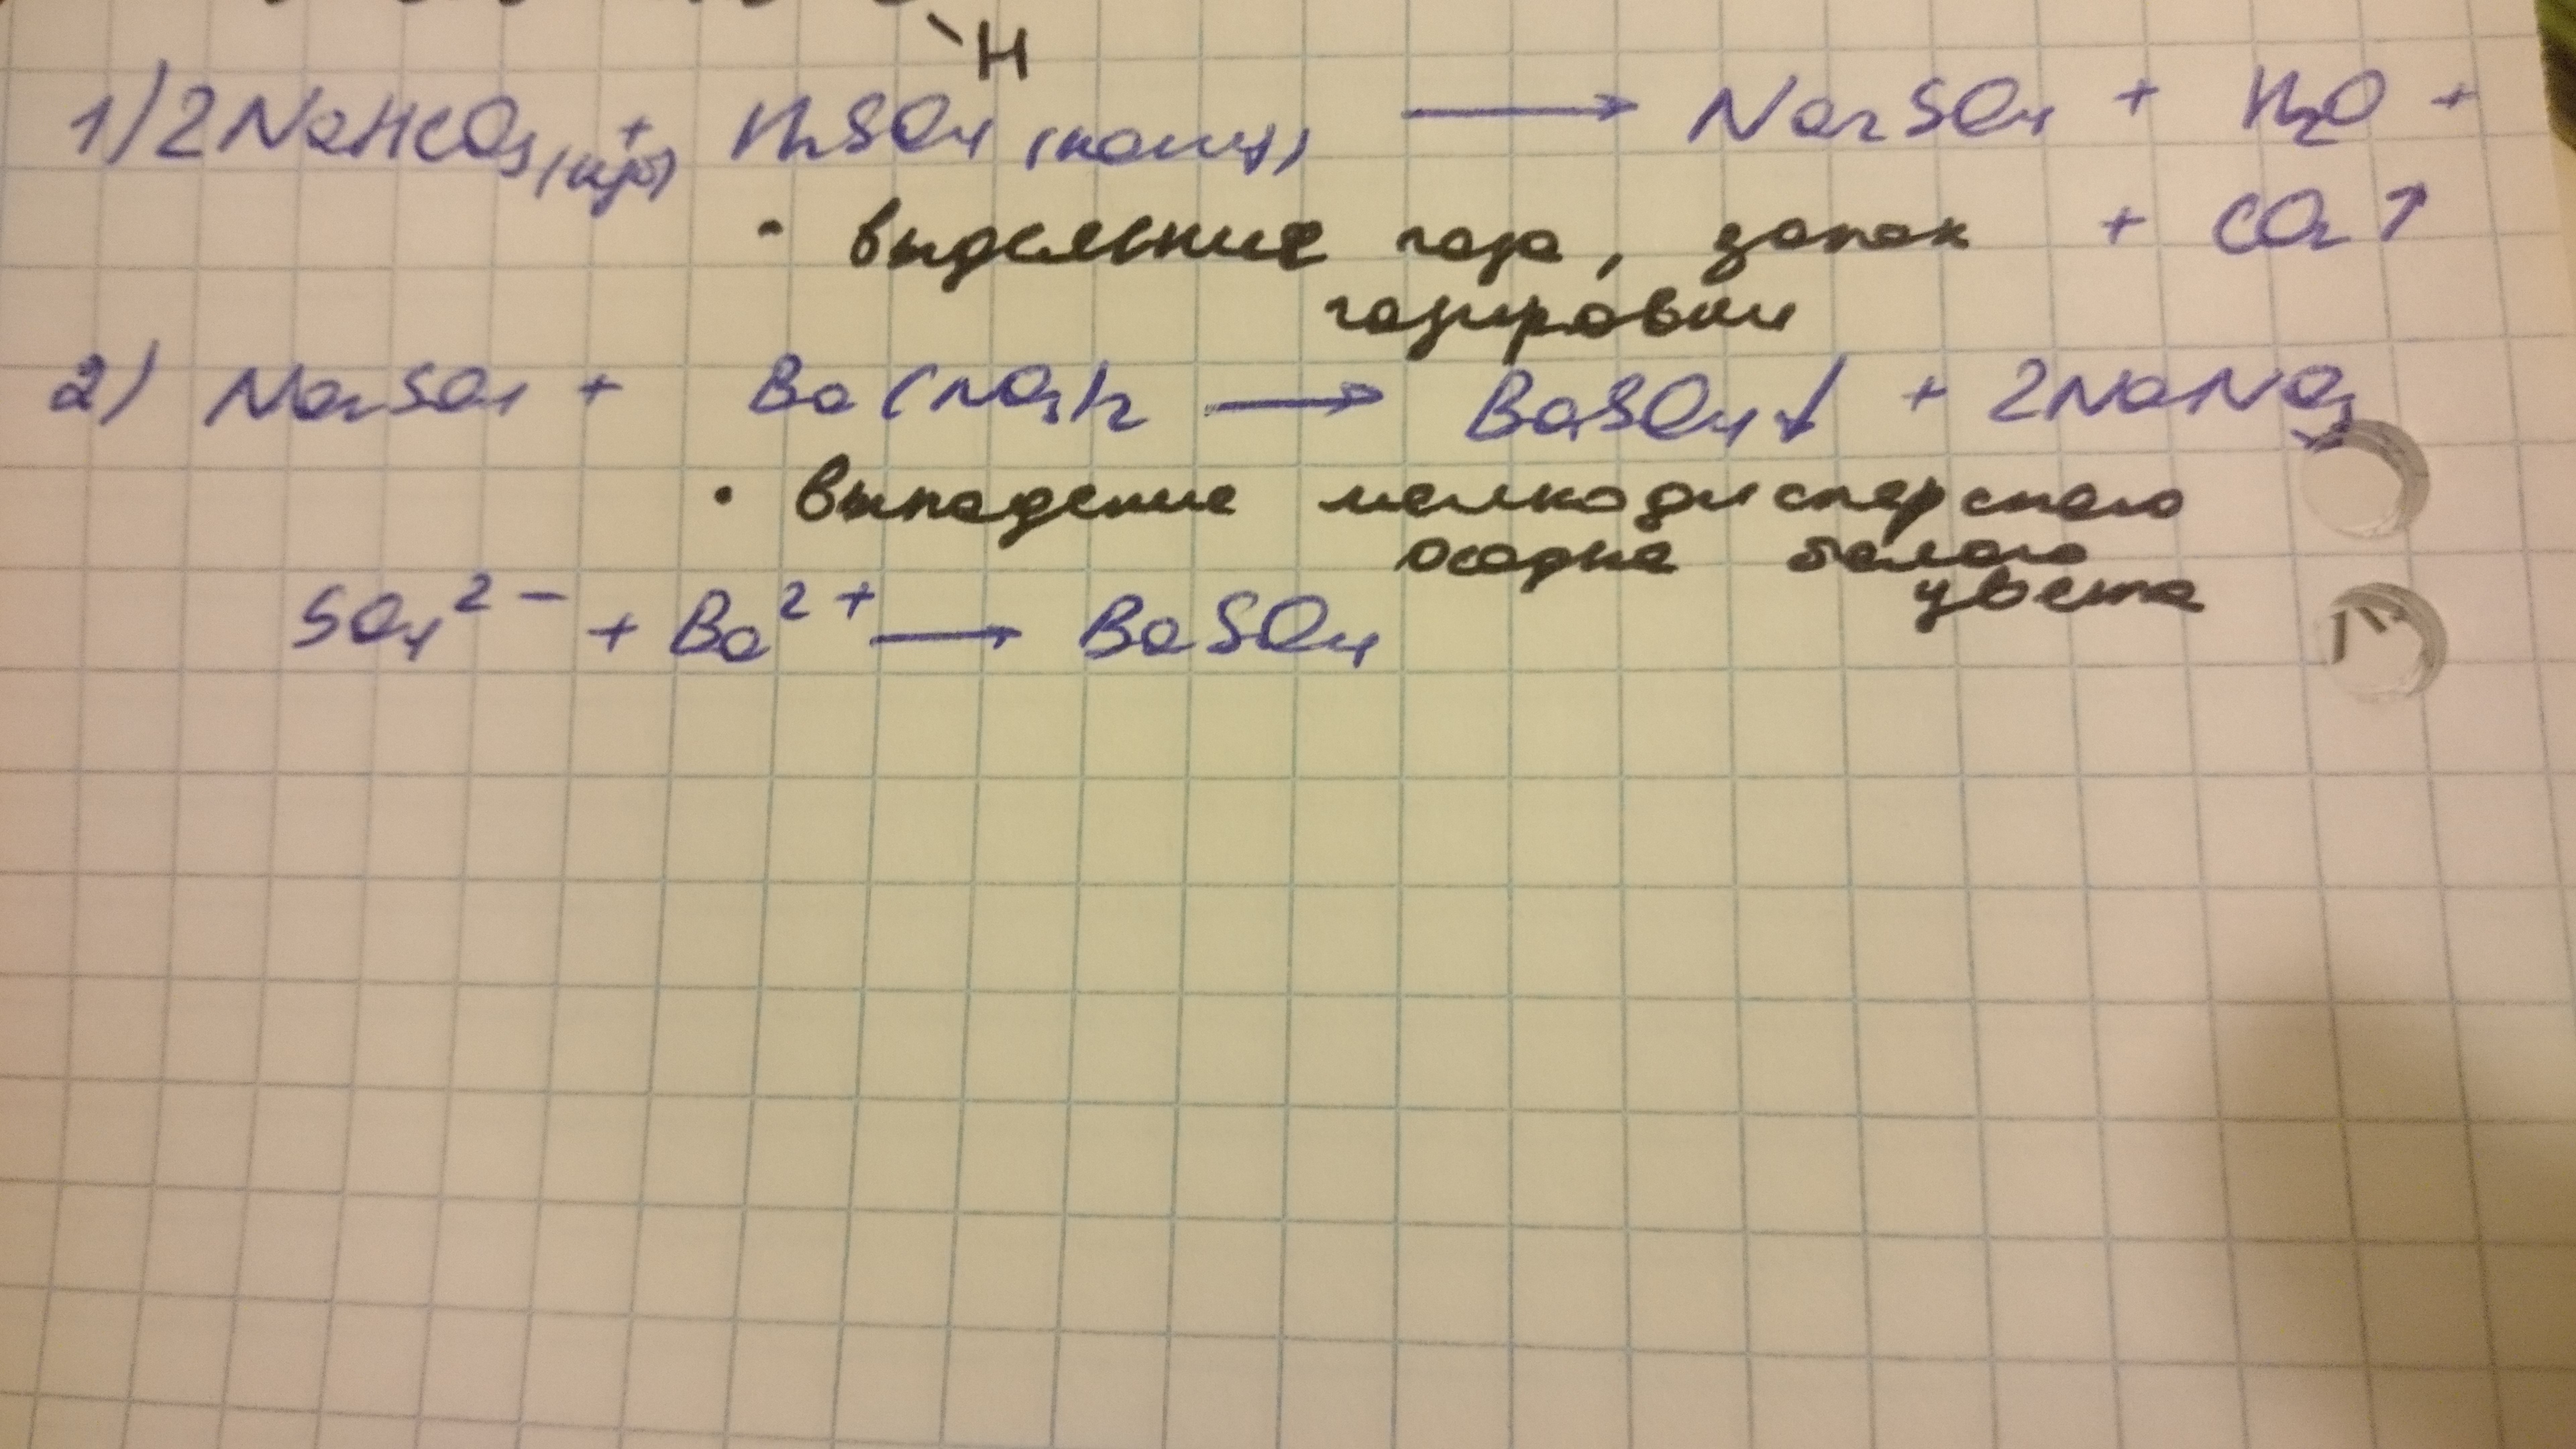 H
1) 2NaHCO₃ (кр) + H₂SO₄ (конц) → Na₂SO₄ + H₂O +
+ CO₂ ↑
• выделение газа, запах
газировки
2) Na₂SO₄ + Ba(NO₃)₂ → BaSO₄ ↓ + 2NaNO₃
• выпадение мелкодисперсного
осадка белого
цвета
SO₄²⁻ + Ba²⁺ → BaSO₄